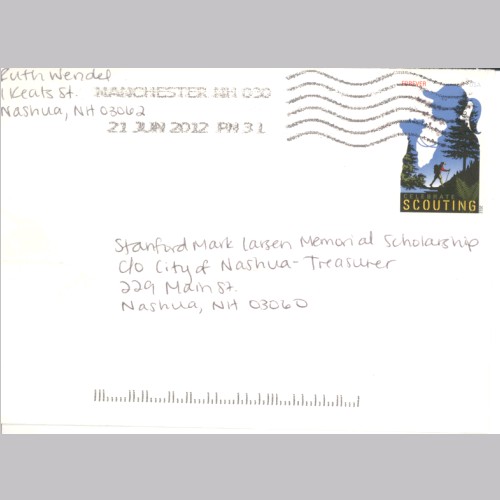 Ruth Wendel
1 Keats St.
Nashua, NH 03062
MANCHESTER NH 030
21 JUN 2012 PM 3 L
FOREVER
CELEBRATE
SCOUTING
Stanford Mark Larsen Memorial Scholarship
c/o City of Nashua - Treasurer
229 Main St.
Nashua, NH 03060